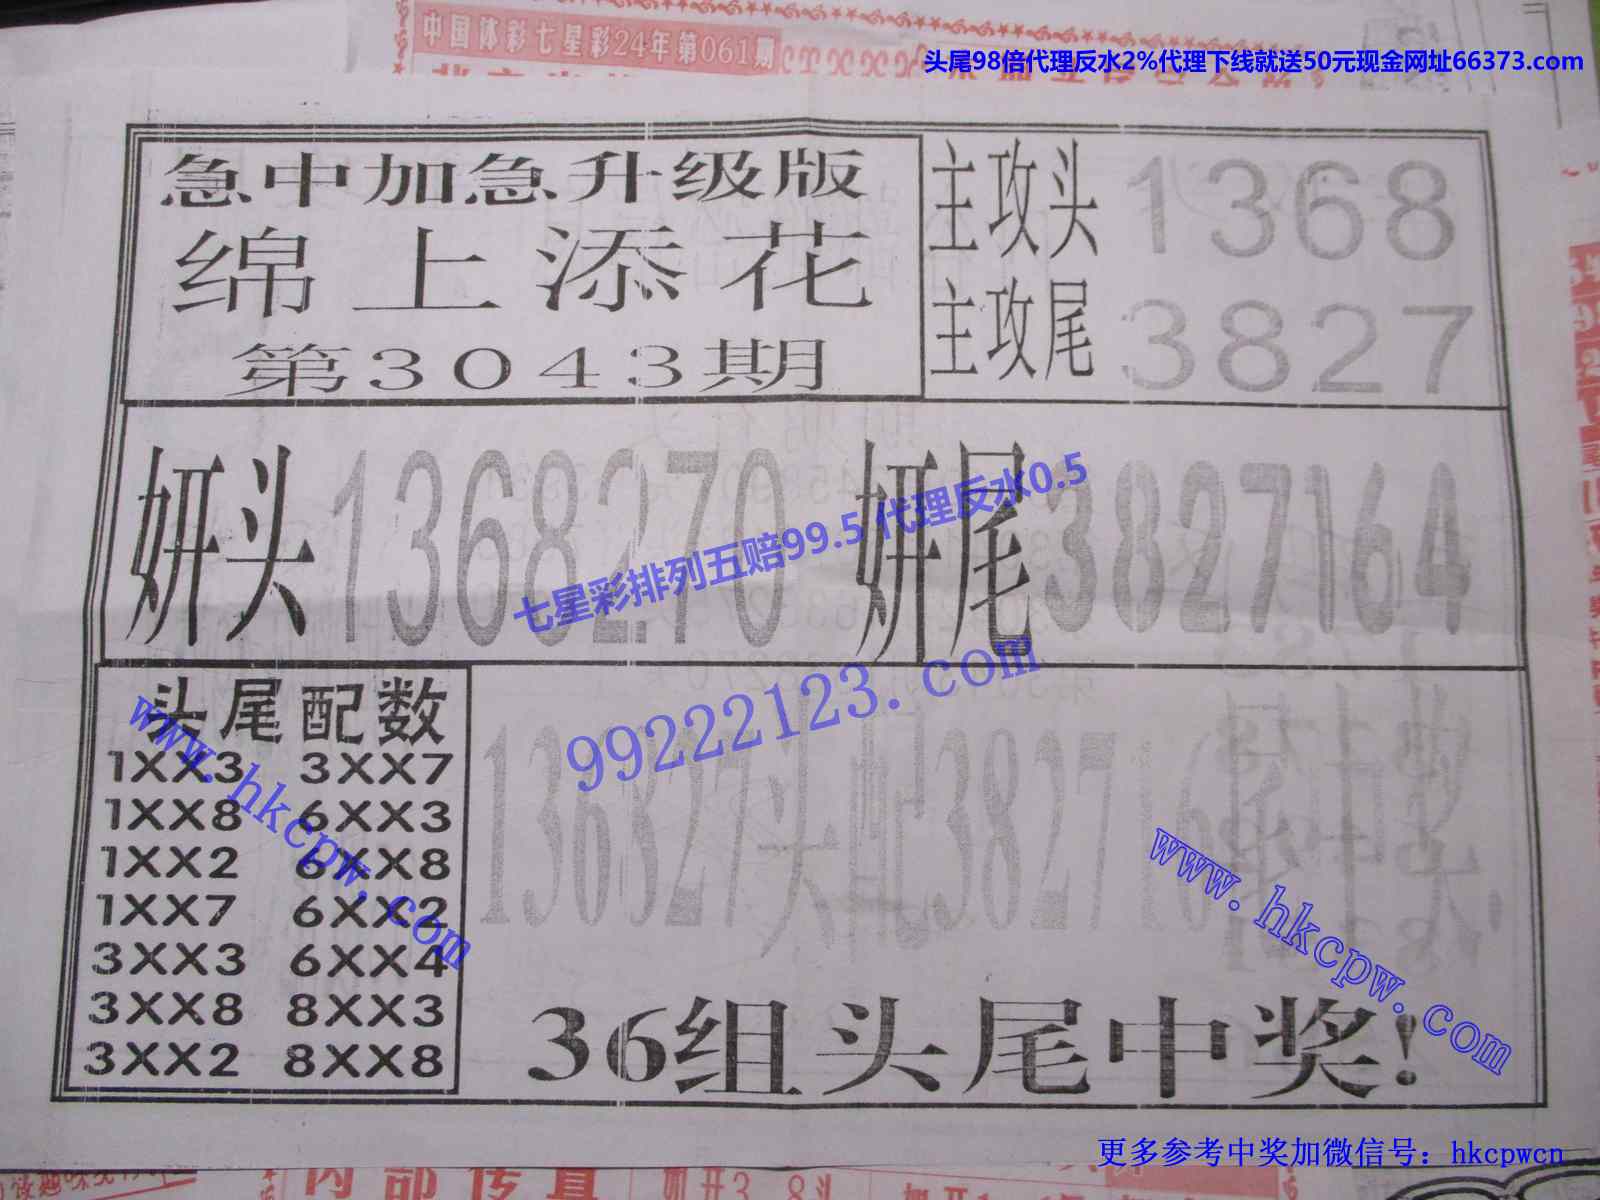 中国体彩七星彩24年第061期
头尾98倍代理反水2%代理下线就送50元现金网址66373.com
急中加急升级版
绵上添花
第3043期
主攻头 1368
主攻尾 3827
妍头 1368270 妍尾 3827164
七星彩排列五赔99.5 代理反水0.5
99222123.com
头尾配数
1XX3 3XX7
1XX8 6XX3
1XX2 6XX8
1XX7 6XX2
3XX3 6XX4
3XX8 8XX3
3XX2 8XX8
www.hkcpw.com
136827头配382716
www.hkcpw.com
36组头尾中奖!
更多参考中奖加微信号：hkcpwcn
内部传真